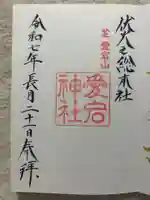 伏火之総本社
芝 愛宕山
愛宕神社
令和七年長月二十一日奉拝